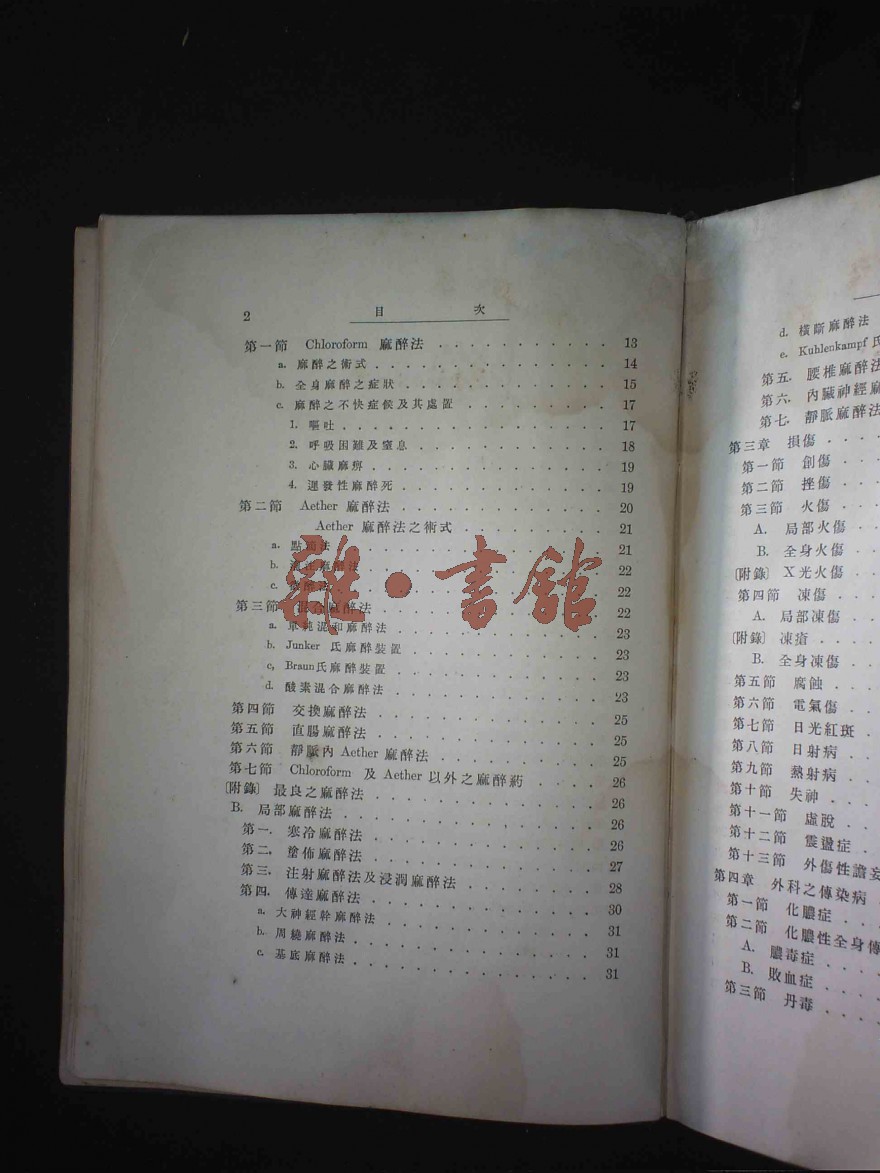 2 目 次
第一節 Chloroform 麻醉法 . . . . . . . . . . 13
a. 麻醉之術式 . . . . . . . . . . 14
b. 全身麻醉之症狀 . . . . . . . . . . 15
c. 麻醉之不快症候及其處置 . . . . . . . . 17
1. 嘔吐 . . . . . . . . . . 17
2. 呼吸困難及窒息 . . . . . . . . . . 18
3. 心臟麻痹 . . . . . . . . . . 19
4. 遲發性麻醉死 . . . . . . . . . . 19
第二節 Aether 麻醉法 . . . . . . . . . . 20
Aether 麻醉法之術式 . . . . . . . . 21
a. 點滴法 . . . . . . . . . . 21
b. 麻醉法 . . . . . . . . . . 22
c. 醉法 . . . . . . . . . . 22
第三節 混合麻醉法 . . . . . . . . . . 22
a. 單純混和麻醉法 . . . . . . . . . . 23
b. Junker 氏麻醉裝置 . . . . . . . . . . 23
c. Braun氏麻醉裝置 . . . . . . . . . . 23
d. 酸素混合麻醉法 . . . . . . . . . . 23
第四節 交換麻醉法 . . . . . . . . . . 25
第五節 直腸麻醉法 . . . . . . . . . . 25
第六節 靜脈內 Aether 麻醉法 . . . . . . . . 25
第七節 Chloroform 及 Aether 以外之麻醉葯 . . . . 26
〔附錄〕 最良之麻醉法 . . . . . . . . . . 26
B. 局部麻醉法 . . . . . . . . . . 26
第一. 寒冷麻醉法 . . . . . . . . . . 26
第二. 塗佈麻醉法 . . . . . . . . . . 27
第三. 注射麻醉法及浸潤麻醉法 . . . . . . . 28
第四. 傳達麻醉法 . . . . . . . . . . 30
a. 大神經幹麻醉法 . . . . . . . . . . 31
b. 周繞麻醉法 . . . . . . . . . . 31
c. 基底麻醉法 . . . . . . . . . . 31
雜·書館
d. 橫斷麻醉法
e. Kuhlenkampf 氏
第五. 腰椎麻醉法
第六. 內臟神經麻
第七. 靜脈麻醉法
第三章 損傷 . . . .
第一節 創傷 . . .
第二節 挫傷 . . .
第三節 火傷 . . .
A. 局部火傷 . .
B. 全身火傷 . .
〔附錄〕 X光火傷 . .
第四節 凍傷 . . .
A. 局部凍傷 . .
〔附錄〕 凍瘡 . . .
B. 全身凍傷 . .
第五節 腐蝕 . . .
第六節 電氣傷 . .
第七節 日光紅斑 . .
第八節 日射病 . .
第九節 熱射病 . .
第十節 失神 . . .
第十一節 虛脫 . . .
第十二節 震盪症 . .
第十三節 外傷性譫妄
第四章 外科之傳染病 .
第一節 化膿症 . . .
第二節 化膿性全身傳
A. 膿毒症 . . . .
B. 敗血症 . . . .
第三節 丹毒 . . . .